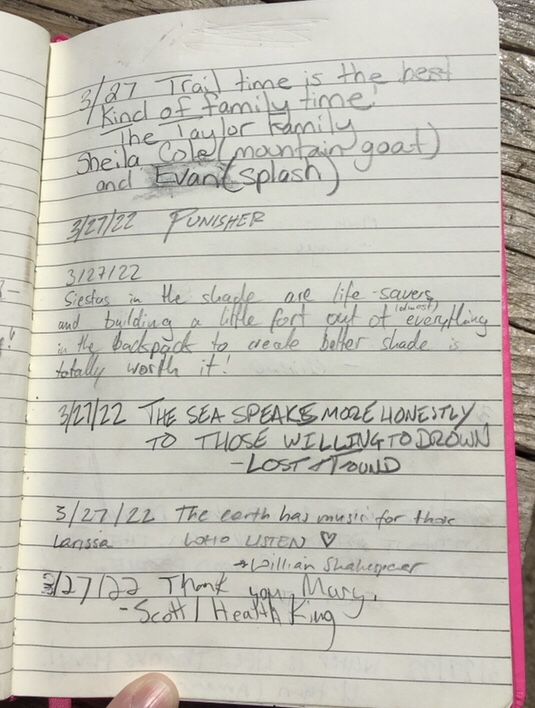 3/27 Trail time is the best
kind of family time!
The Taylor Family
Sheila Cole (mountain goat)
and Evan (splash)
3/27/22 PUNISHER
3/27/22
Siestas in the shade are life-savers,
and building a little fort out of (almost) everything
in the backpack to create better shade is
totally worth it!
3/27/22 THE SEA SPEAKS MORE HONESTLY
TO THOSE WILLING TO DROWN
-LOST & FOUND
3/27/22 The earth has music for those
Larissa WHO LISTEN ♡
→William Shakespear
3/27/22 Thank you, Mary.
-Scott / Health King